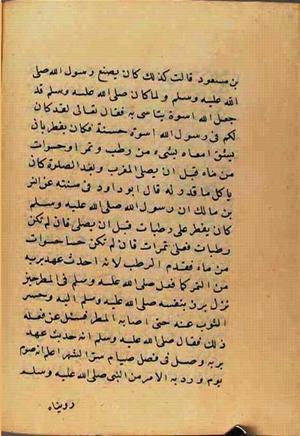 بن مسعود قالت كذلك كان يصنع رسول الله صلى
الله عليه وسلم ولما كان صلى الله عليه وسلم قد
جعل الله اسوة يتاسى به فقال تعالى لقد كان
لكم فى رسول الله اسوة حسنة فكان يفطر بان
معاه بشىء من رطب وتمر او حسوات
من ماء قبل ان يصلى المغرب وبعد الصلوة كان
ياكل ما قدر له قال ابو داود فى سننه عن انس
بن مالك ان رسول الله صلى الله عليه وسلم
كان يفطر على رطبات قبل ان يصلى فان لم تكن
رطبات فعلى تمرات فان لم تكن حسا حسوات
من ماء فقدم الرطب لانه احدث عهد بربه
من التمر كما فعل صلى الله عليه وسلم فى المطر حين
نزل برز بنفسه صلى الله عليه وسلم اليه وحسر
الثوب عنه حتى اصابه المطر فسئل عن فعله
ذلك فقال صلى الله عليه وسلم انه حديث عهد
بربه وصل فى فصل صيام سرر الشهر اعلم انه صوم
يوم ورد به الامر من النبى صلى الله عليه وسلم
رويناه